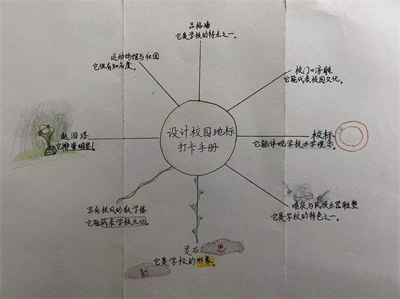 品格墙
它是学校的特色之一。
运动场馆与花园
它很有知名度。
校门口浮雕
它能代表校园文化。
设计校园地标
打卡手册
校标
它能体现学校办学理念。
塔
它非常明显。
写有校风的教学楼
它能代表学校文化。
喷泉与民族乐器雕塑
它是学校的特色之一。
灵石
它是学校的形象。